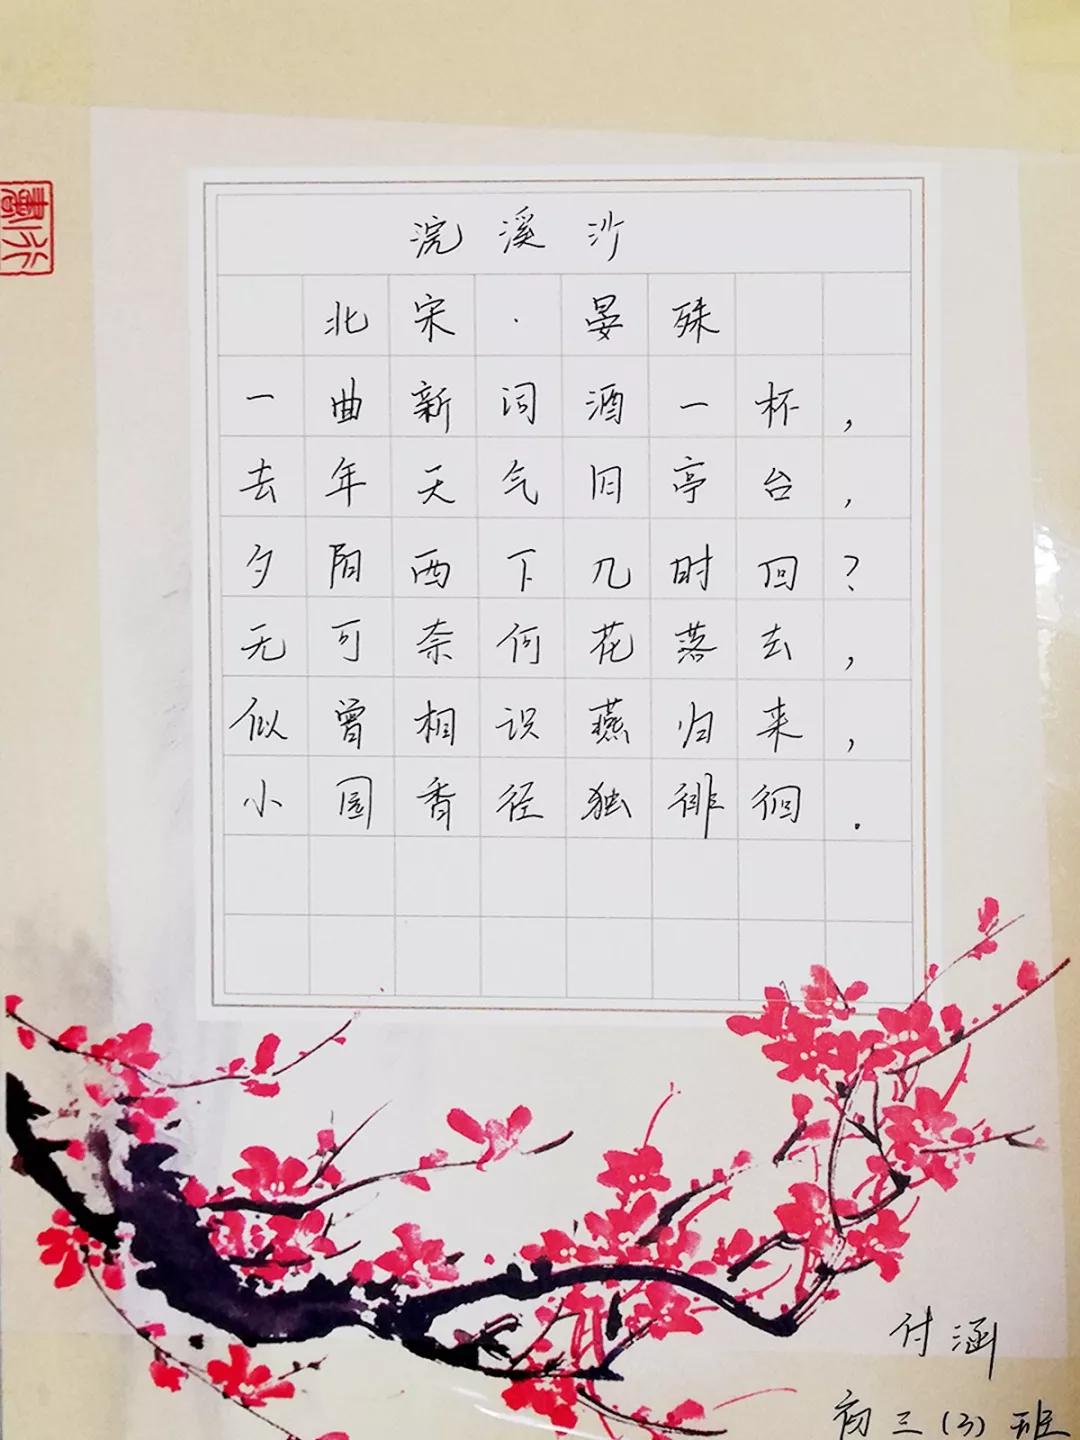 浣溪沙
北宋·晏殊
一曲新词酒一杯，
去年天气旧亭台，
夕阳西下几时回？
无可奈何花落去，
似曾相识燕归来，
小园香径独徘徊.
付涵
初三(3)班